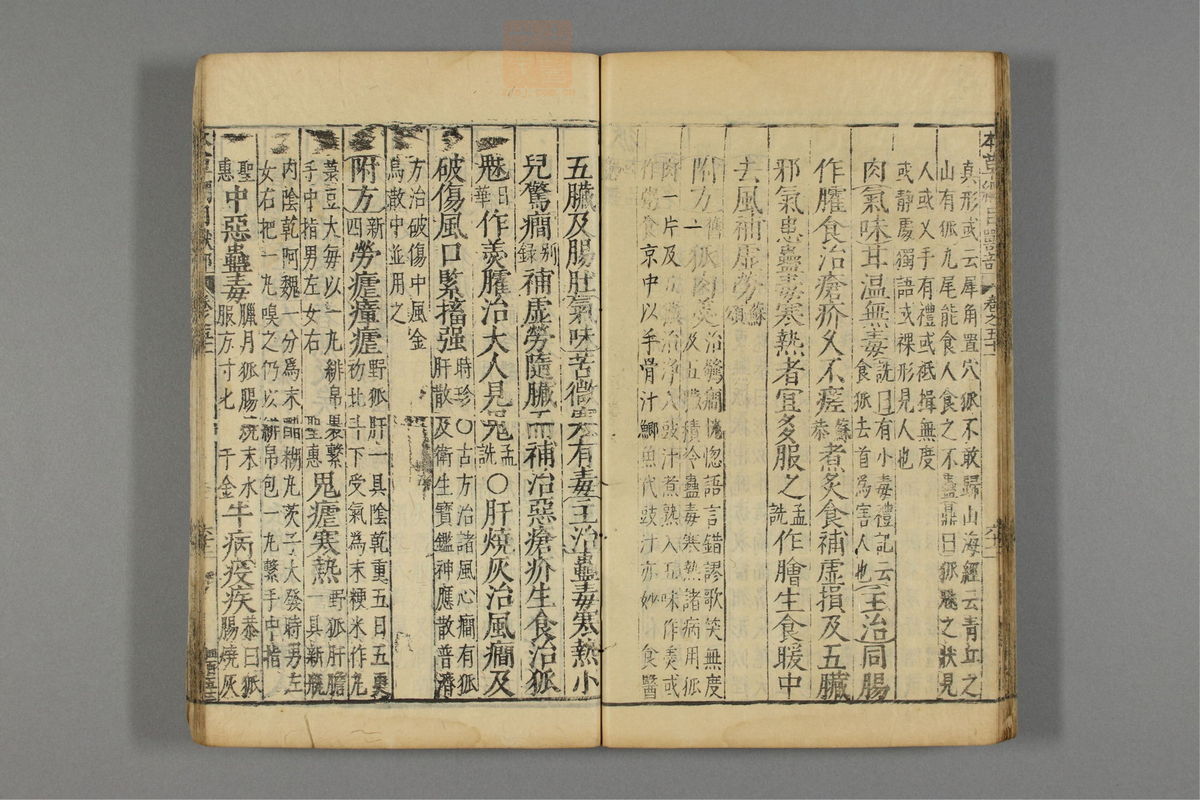 真形或云犀角置穴狐不敢歸山海經云青丘之
山有狐九尾能食人食之不蠱鼎曰狐魅之狀見
人或叉手有禮或祗揖無度
或靜處獨語或裸形見人也
肉氣味甘温無毒詵曰有小毒禮記云
食狐去首爲害人也主治同腸
作臛食治瘡疥久不瘥蘇恭煮炙食補虛損及五臟
邪氣患蠱毒寒熱者宜多服之孟詵作膾生食暖中
去風補虛勞蘇頌
附方舊一狐肉羹治驚癇恍惚語言錯謬歌笑無度
及五臟積冷蠱毒寒熱諸病用狐
肉一片及五臟治淨入豉汁煮熟入五味作羹或
作粥食京中以手骨汁鯽魚代豉汁亦妙 食醫
五臟及腸肚氣味苦微寒有毒主治蠱毒寒熱小
兒驚癇別録補虛勞隨臟而補治惡瘡疥生食治狐
魅日華作羹臛治大人見鬼孟詵○肝燒灰治風癇及
破傷風口緊搐强時珍○古方治諸風心癇有狐
肝散及衛生寶鑑神應散普濟
方治破傷中風金
烏散中並用之
附方新四勞瘧瘴瘧野狐肝一具陰乾重五日五更
初北斗下受氣爲末粳米作丸
菉豆大每以一丸緋帛裹繫
手中指男左女右 聖惠鬼瘧寒熱野狐肝膽
一具新瓶
內陰乾阿魏一分爲末醋糊丸芡子大發時男左
女右把一丸嗅之仍以緋帛包一丸繫手中指
聖惠中惡蠱毒臘月狐腸燒末水
服方寸匕 千金牛病疫疾恭曰狐
腸燒灰